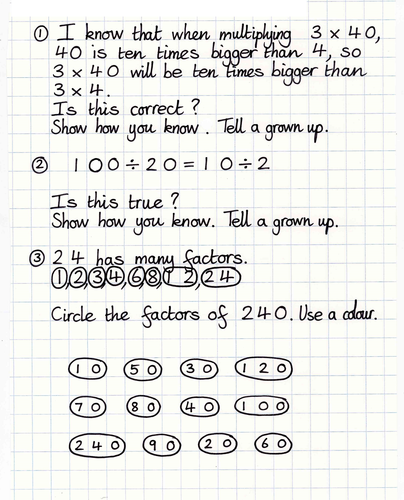 ① I know that when multiplying 3 × 40,
40 is ten times bigger than 4, so
3 × 40 will be ten times bigger than
3 × 4.
Is this correct?
Show how you know. Tell a grown up.
② 100 ÷ 20 = 10 ÷ 2
Is this true?
Show how you know. Tell a grown up.
③ 24 has many factors.
1, 2, 3, 4, 6, 8, 12, 24
Circle the factors of 240. Use a colour.
10 50 30 120
70 80 40 100
240 90 20 60